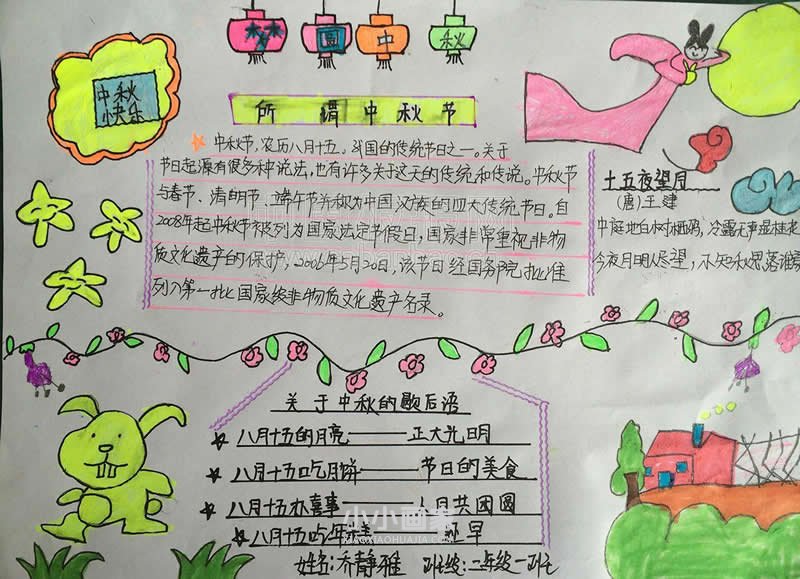 梦 圆 中 秋
中秋
快乐
所 谓 中 秋 节
中秋节，农历八月十五，我国的传统节日之一。关于
节日起源有很多种说法，也有许多关于这天的传统和传说。中秋节
与春节、清明节、端午节并称为中国汉族的四大传统节日。自
2008年起中秋节被列为国家法定节假日，国家非常重视非物
质文化遗产的保护，2006年5月20日，该节日经国务院批准
列入第一批国家级非物质文化遗产名录。
十五夜望月
(唐)王建
中庭地白树栖鸦，冷露无声湿桂花
今夜月明人尽望，不知秋思落谁家
关于中秋的歇后语
八月十五的月亮——正大光明
八月十五吃月饼——节日的美食
八月十五办喜事——人月共团圆
八月十五吃年
早
小小画家
XIAOXIAOHUAJIA.COM
姓名:乔静雅 班级:二年级一班